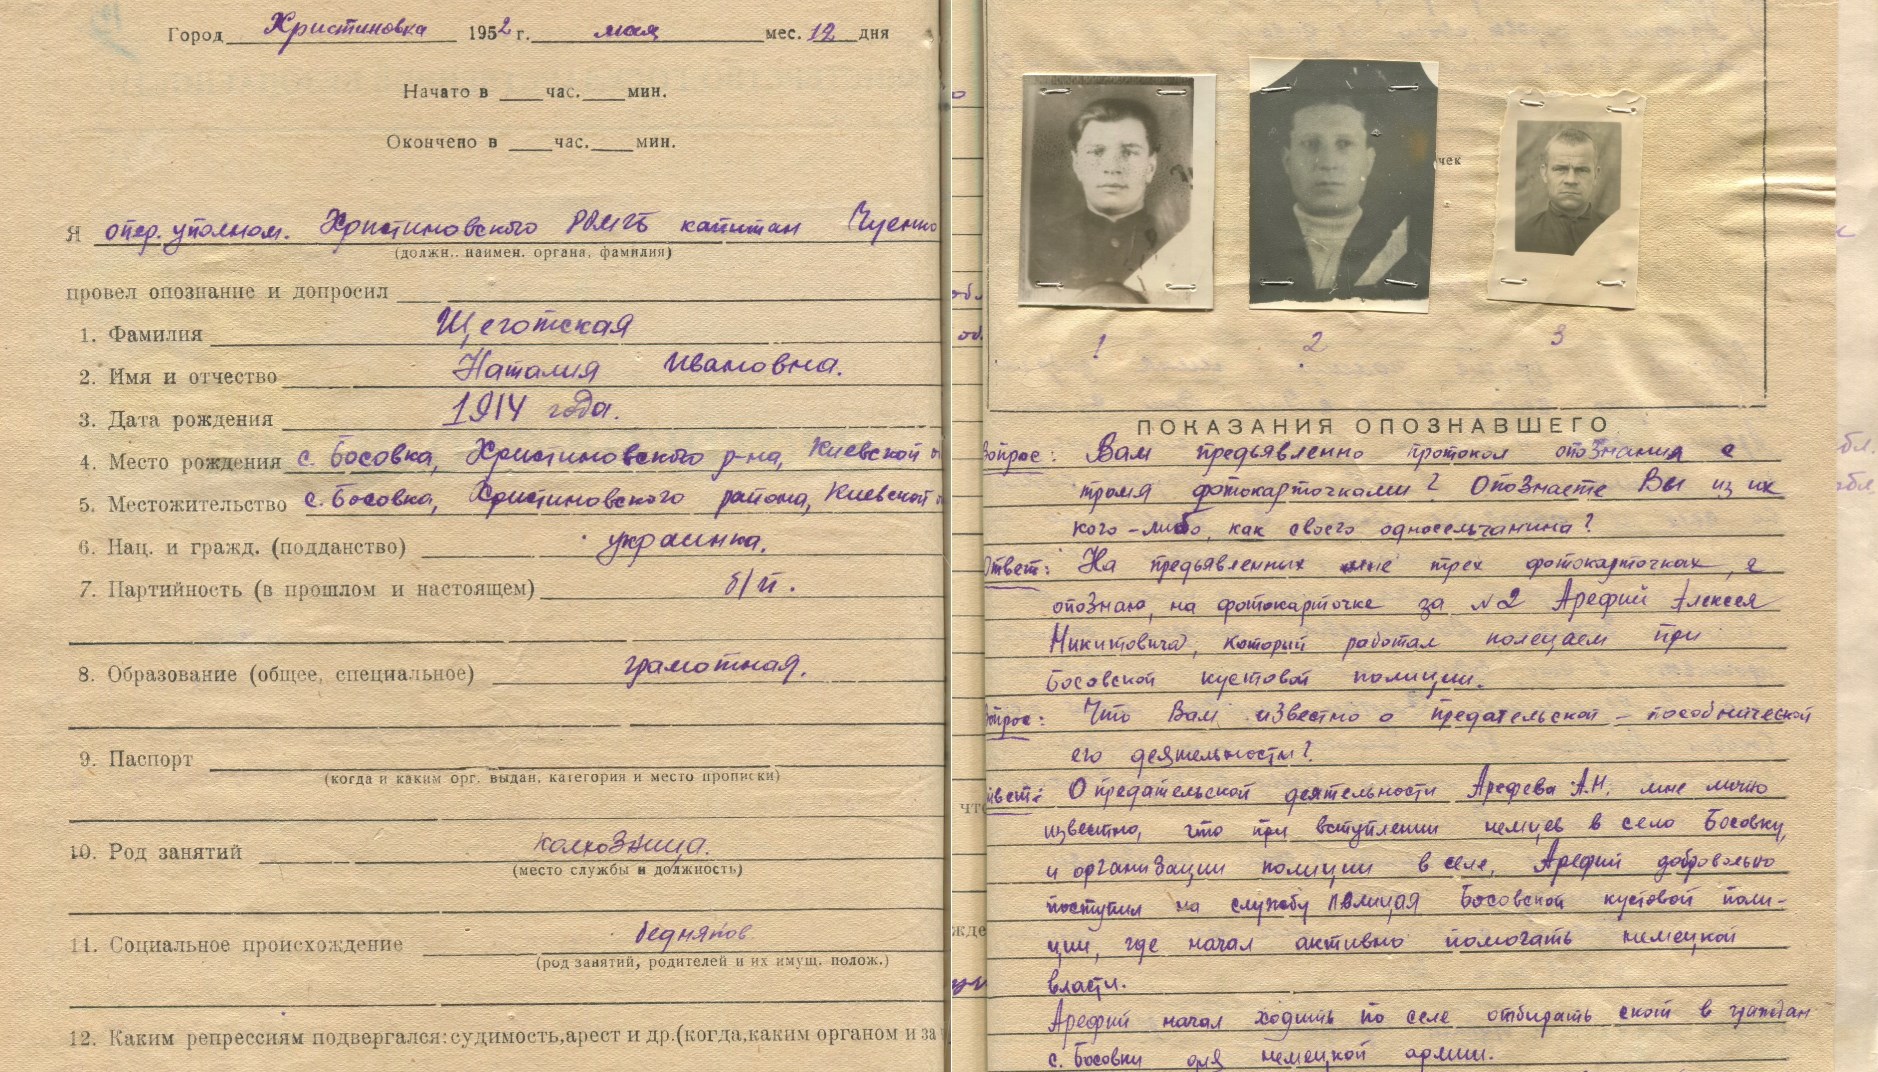 Город Христиновка 1952 г. мая мес. 12 дня
Начато в ___ час. ___ мин.
Окончено в ___ час. ___ мин.
Я опер. уполном. Христиновского РОМГБ капитан
(должн., наимен. органа, фамилия)
провел опознание и допросил
1. Фамилия Щеготская
2. Имя и отчество Наталия Ивановна.
3. Дата рождения 1914 года.
4. Место рождения с. Босовка, Христиновского р-на, Киевской
5. Местожительство с. Босовка, Христиновского района, Киевской
6. Нац. и гражд. (подданство) украинка.
7. Партийность (в прошлом и настоящем) б/п.
8. Образование (общее, специальное) грамотная.
9. Паспорт
(когда и каким орг. выдан, категория и место прописки)
10. Род занятий колхозница.
(место службы и должность)
11. Социальное происхождение бедняков
(род занятий, родителей и их имущ. полож.)
12. Каким репрессиям подвергался: судимость, арест и др. (когда, каким органом и за
чек
1 2 3
ПОКАЗАНИЯ ОПОЗНАВШЕГО
Вопрос: Вам предьявленно протокол опознания с
тремя фотокарточками? Опознаете Вы из их
кого-либо, как своего односельчанина?
Ответ: На предьявленных мне трех фотокарточках, я
опознаю, на фотокарточке за №2 Арефий Алексея
Никитовича, который работал полецаем при
Босовской кустовой полиции.
Вопрос: Что Вам известно о предательской - пособнической
его деятельности?
Ответ: О предательской деятельности Арефева А.Н. мне лично
известно, что при вступлении немцев в село Босовку,
и организации полиции в селе, Арефий добровольно
поступил на службу полицая Босовской кустовой поли-
ции, где начал активно помогать немецкой
власти.
Арефий начал ходить по селе отбирать скот в граждан
с. Босовки для немецкой армии.